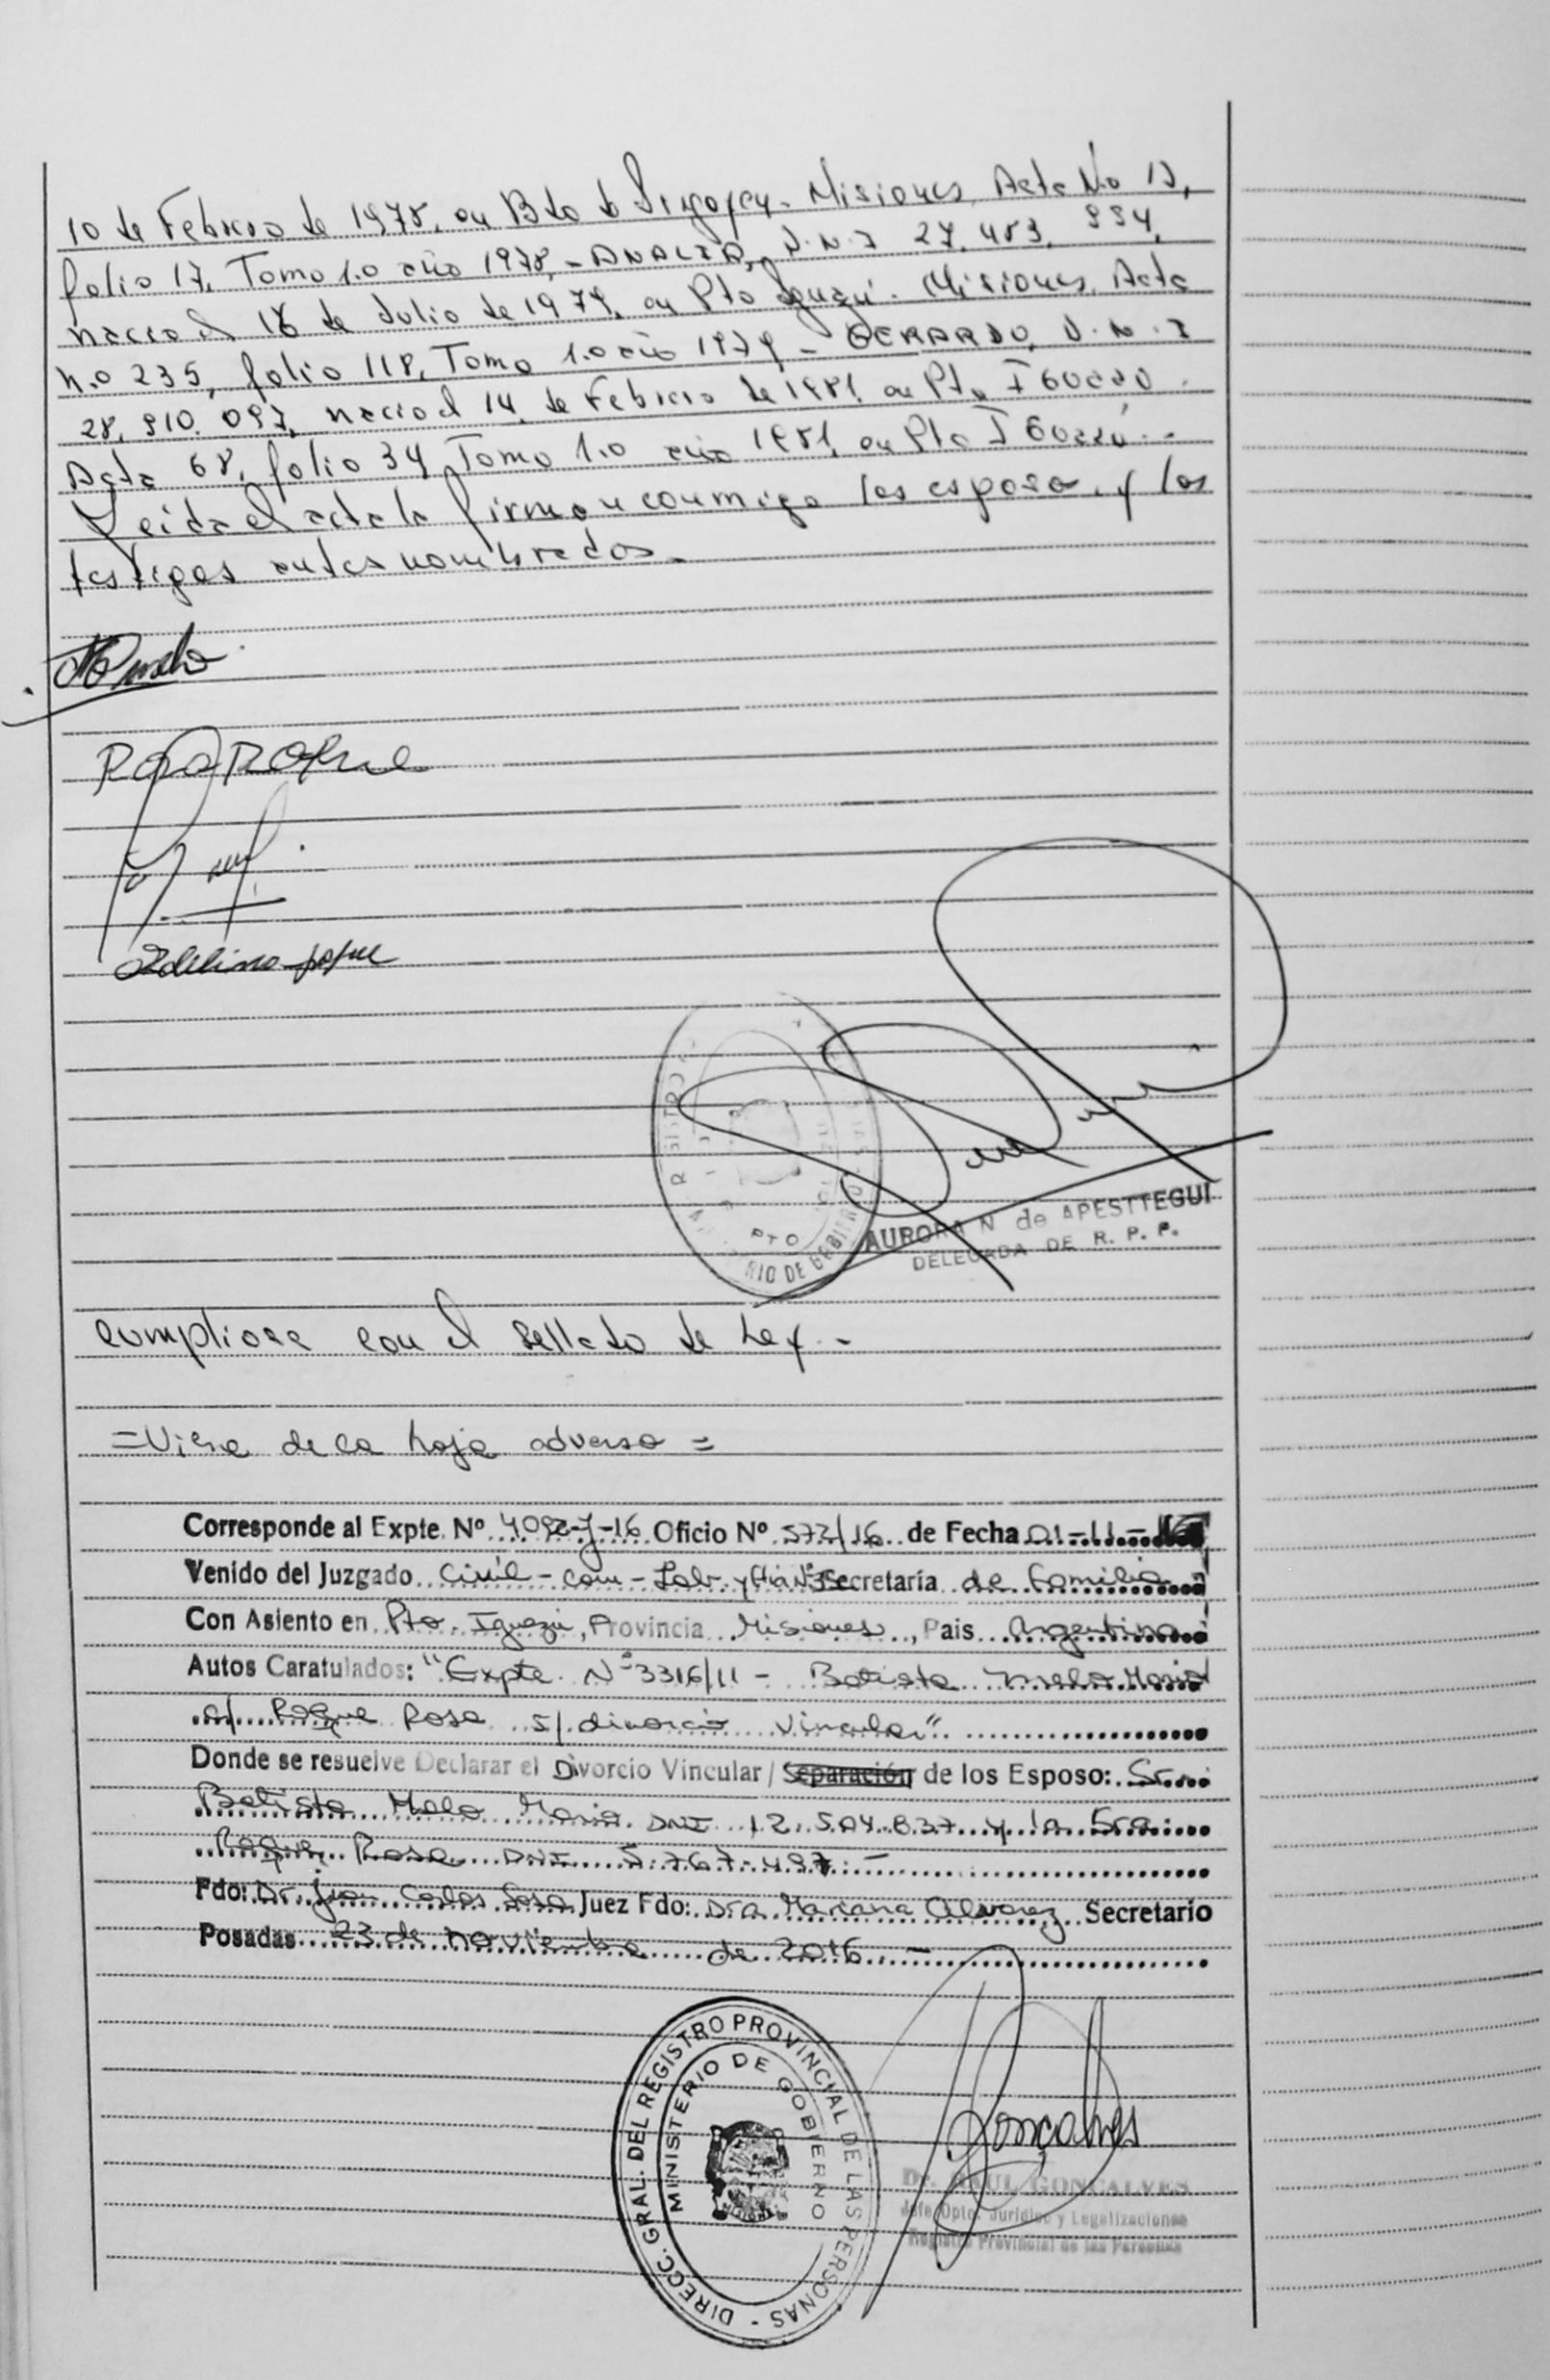 10 de Febrero de 1978, en Bdo de Irigoyen - Misiones, Acta N.o 17,
folio 17, Tomo 1.o año 1978, - ANALIA, D.N.I 27.483.994,
nacio el 18 de Julio de 1979, en Pto Iguazú - Misiones, Acta
n.o 235, folio 118, Tomo 1.o año 1979 - GERARDO, D.N.I
28.910.097, nacio el 14 de Febrero de 1981, en Pto IGUAZÚ -
Acta 68, folio 34 Tomo 1.o año 1981, en Pto IGUAZÚ.-
Leida el acta la firman conmigo los esposos y los
testigos antes nombrados.-
Rosa Roque
Idelino Roque
REGISTRO
PTO
RIO DE GOBIERNO
AURORA N de APESTTEGUI
DELEGADA DE R. P. P.
cumpliose con el sellado de Ley.-
=Viene de la hoja adversa=
Corresponde al Expte. Nº 4092-J-16 Oficio Nº 572/16 de Fecha 01-11-16
Venido del Juzgado Civil - Com - Lab. y Flia Nº Secretaría de Familia
Con Asiento en Pto. Iguazú, Provincia Misiones, Pais Argentina
Autos Caratulados: "Expte. Nº 3316/11 - Batista Melo Mario
c/ Roque Rosa s/ divorcio Vincular"
Donde se resuelve Declarar el Divorcio Vincular / Separación de los Esposo: Sr.
Batista Melo Mario DNI 12.504.837 y la Sra.
Roque Rosa DNI 5.767.497.-
Fdo: Dr. Juan Carlos Sosa Juez Fdo: Dra Mariana Alvarez Secretario
Posadas 23 de noviembre de 2016.-
DIRECC. GRAL. DEL REGISTRO PROVINCIAL DE LAS PERSONAS -
MINISTERIO DE GOBIERNO
MISIONES
Goncalves
Dr. RAUL GONCALVES
Jefe Dpto. Jurídico y Legalizaciones
Registro Provincial de las Personas